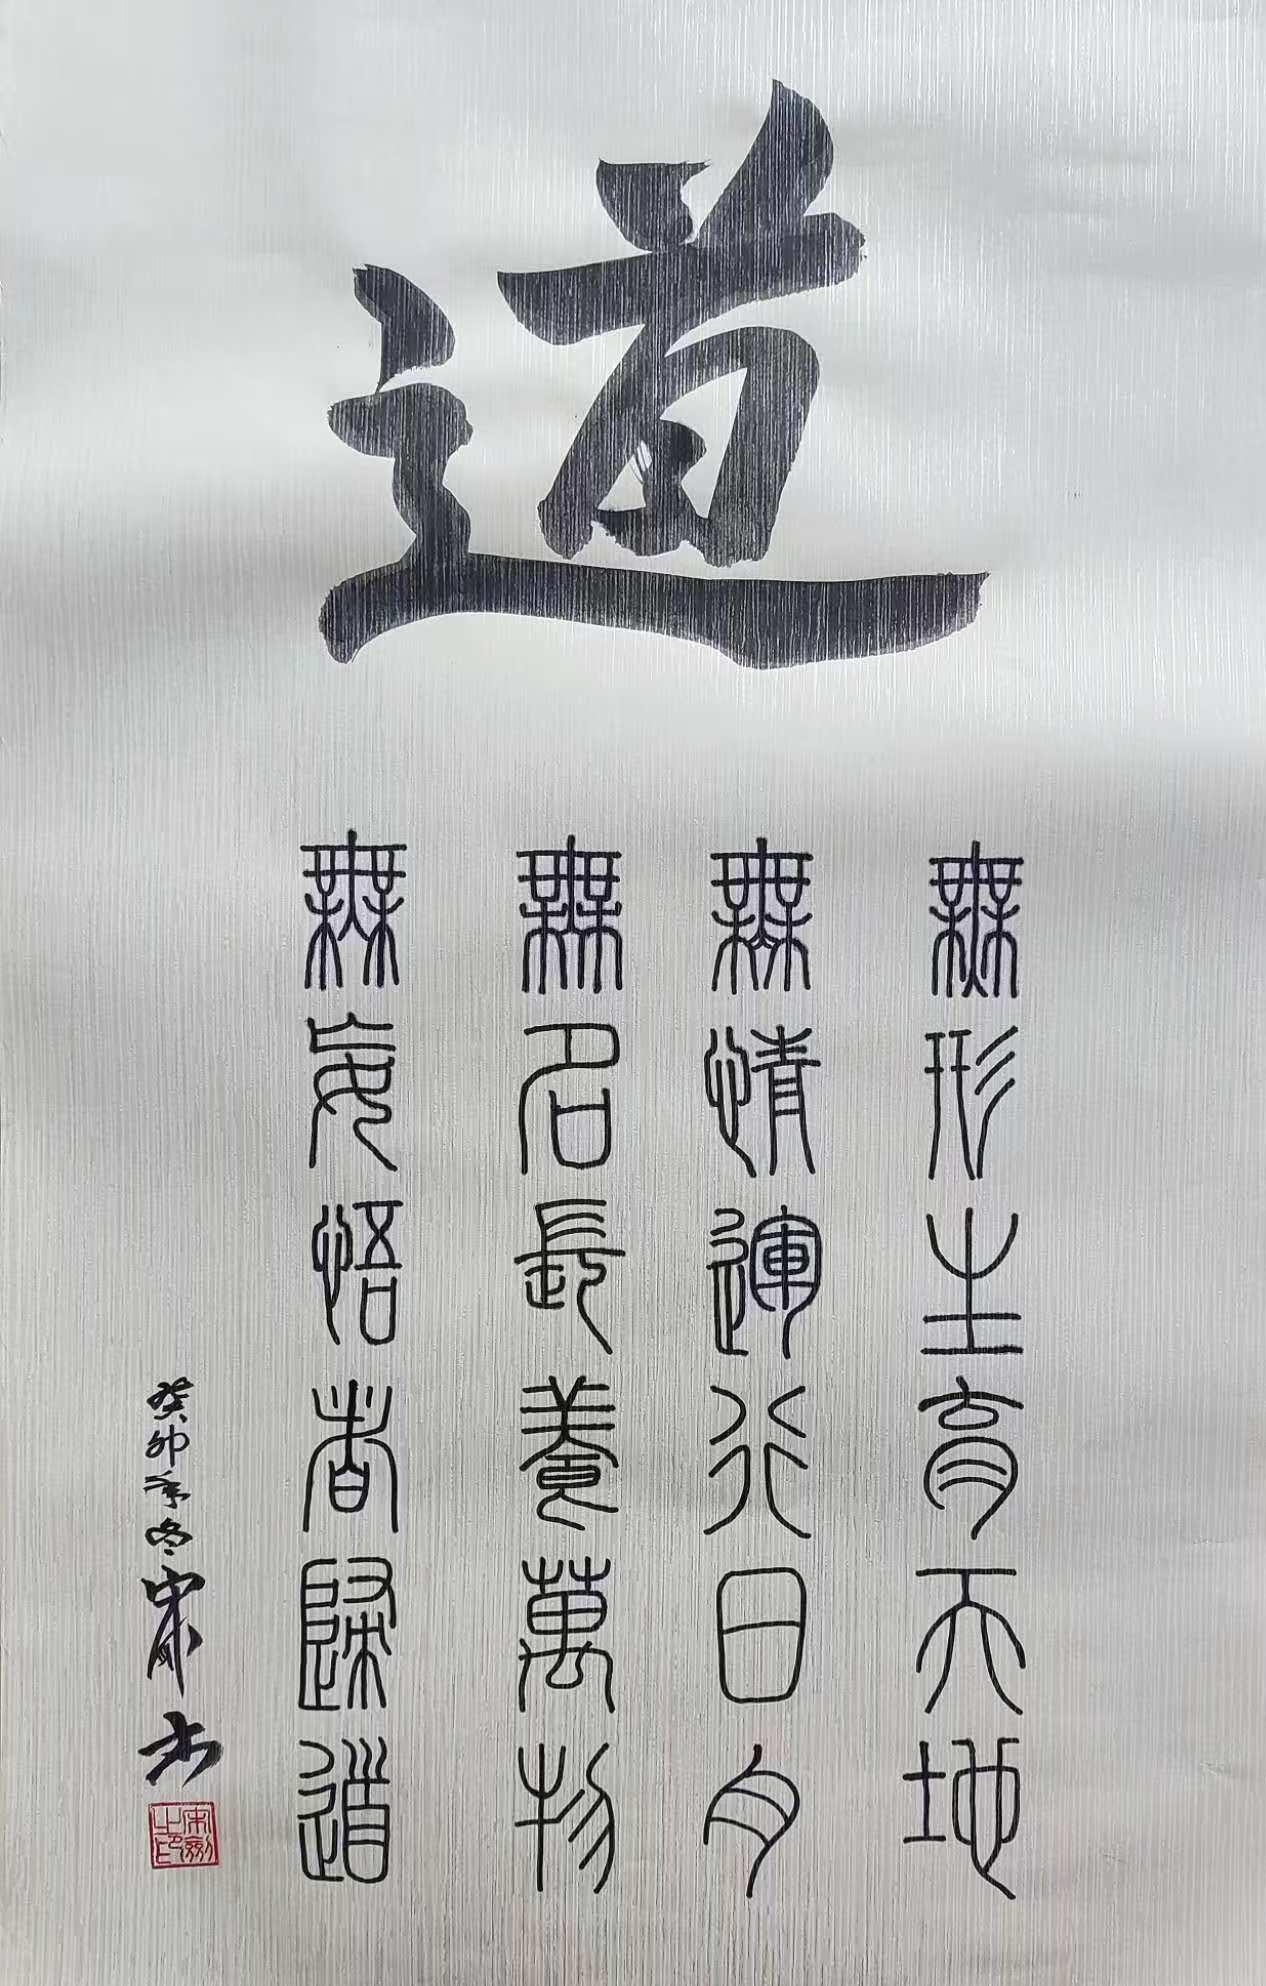 道
無形生育天地
無情運行日月
無名長養萬物
無妄悟者歸道
癸卯年冬宋